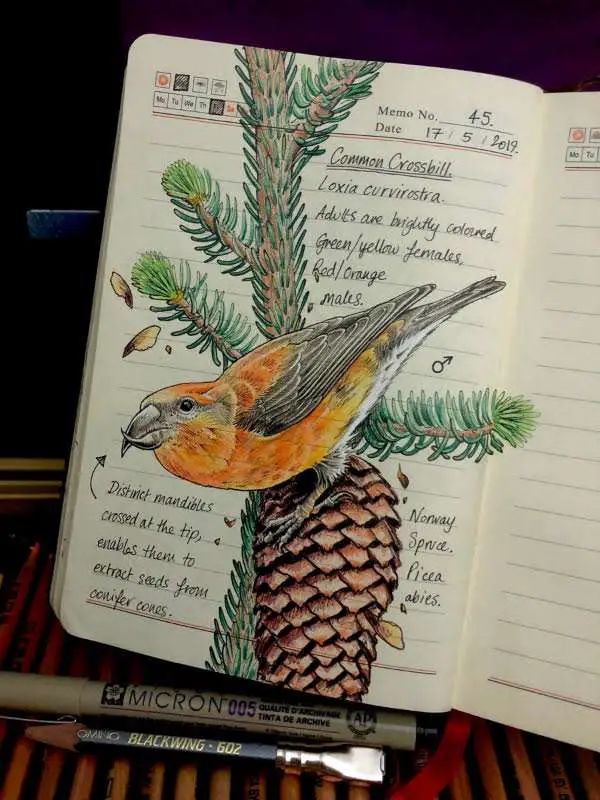 Memo No. 45.
Mo Tu We Th Sa
Date 17 / 5 / 2019.
Mo Tu
Common Crossbill.
Loxia curvirostra.
Adults are brightly coloured
Green/yellow females,
Red/Orange
males.
♂
Distinct mandibles
crossed at the tip,
enables them to
extract seeds from
conifer cones.
Norway
Spruce.
Picea
abies.
MICRON 005
QUALITÉ D'ARCHIVAGE
TINTA DE ARCHIVE
AP
BLACKWING · 602